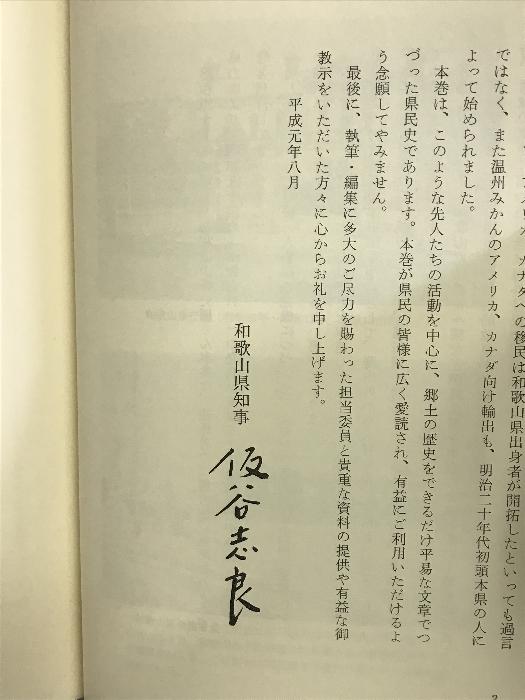 カナダへの移民は和歌山県出身者が開拓したといっても過言
ではなく、また温州みかんのアメリカ、カナダ向け輸出も、明治二十年代初頭本県の人に
よって始められました。
本巻は、このような先人たちの活動を中心に、郷土の歴史をできるだけ平易な文章でつ
づった県民史であります。本巻が県民の皆様に広く愛読され、有益にご利用いただけるよ
う念願してやみません。
最後に、執筆・編集に多大のご尽力を賜わった担当委員と貴重な資料の提供や有益な御
教示をいただいた方々に心からお礼を申し上げます。
平成元年八月
和歌山県知事
仮谷志良